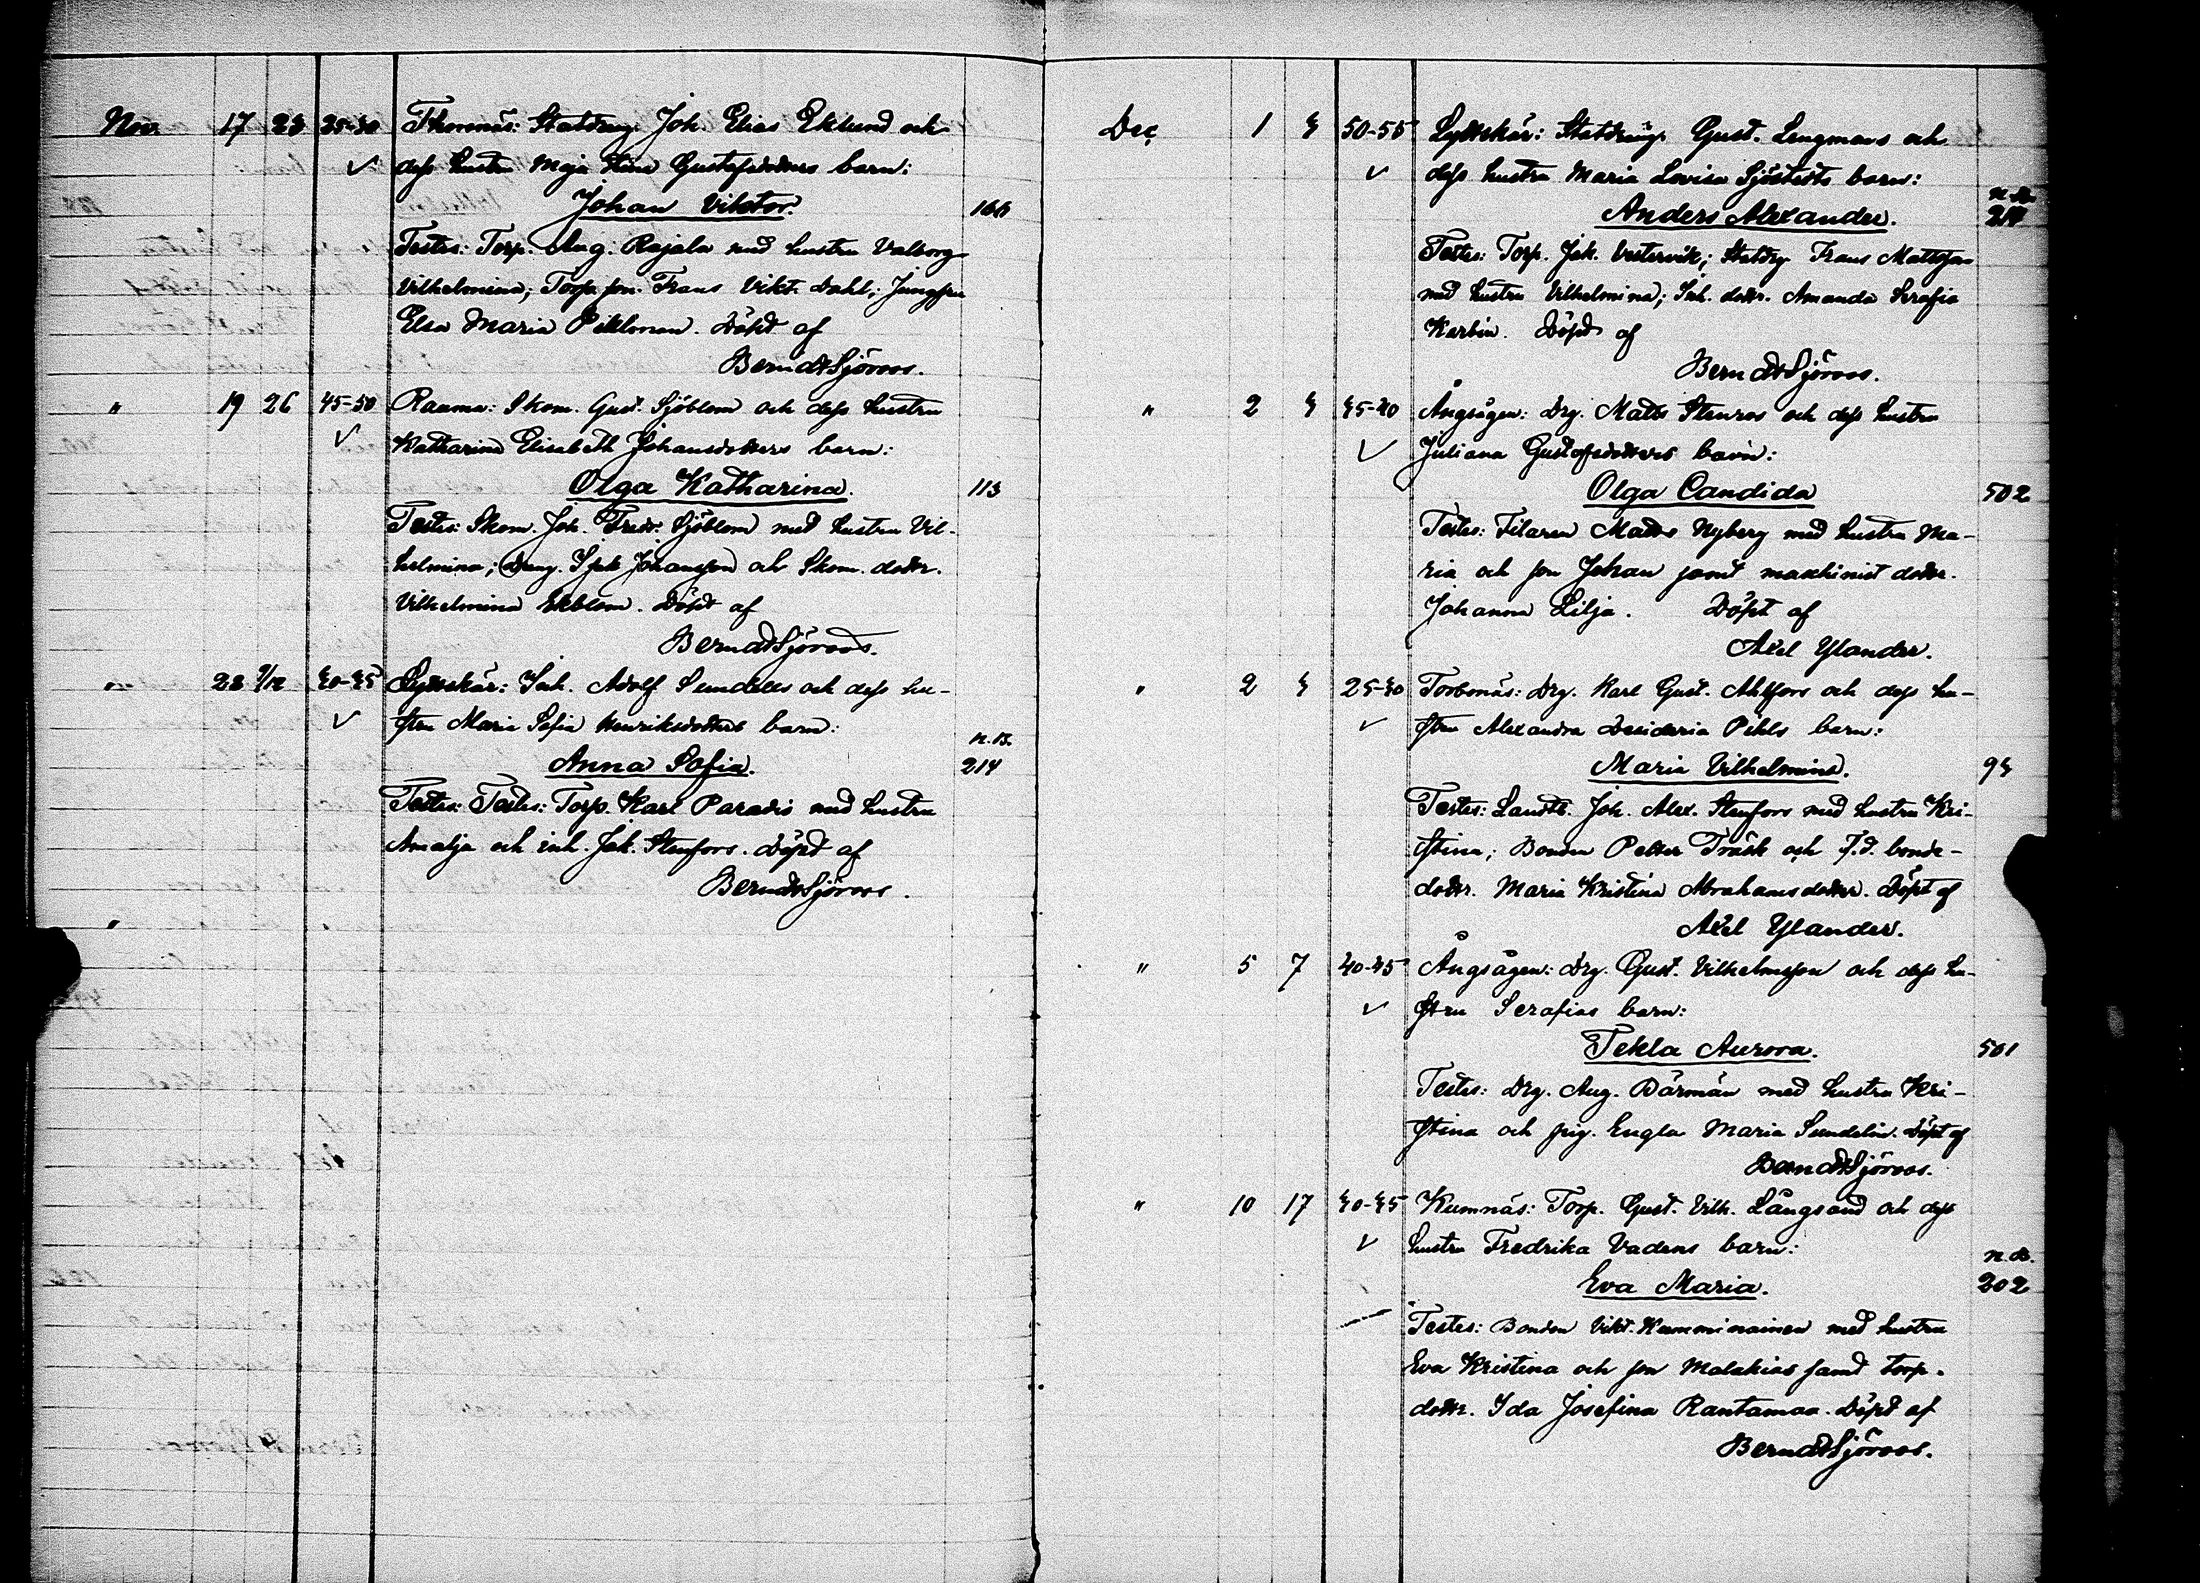 Nov. 17 23 25-30 Thornnäs: Statdrug Joh. Elias Eklund och
✓ dess hustru Maja Stina Gustafsdotters barn:
Johan Viktor. 166
Testes: Torp. Aug. Rajala med hustru Valborg
Vilhelmina; Torp. son Frans Vikt. Dahl; Jungfru
Elsa Maria Piklman. Döpt af
Berndt Sjöroos.
" 19 26 45-50 Rauma: Skom. Gust. Sjöblom och dess hustru
✓ Katharina Elisabeth Johansdotters barn:
Olga Katharina. 113
Testes: Skom. Joh. Fredr. Sjöblom med hustru Vil-
helmina; Dräng. Isak Johansson och Skom. dottr.
Vilhelmina Ekblom. Döpt af
Berndt Sjöroos.
" 28 9/12 40-45 Lyttskär: Inh. Adolf Sundells och dess hu-
✓ stru Maria Sofia Henriksdotters barn:
n. B.
Anna Sofia. 214
Testes: Testes: Torp. Karl Paradis med hustru
Amalja och inh. Jak. Stenfors. Döpt af
Berndt Sjöroos.
"
Dec 1 4 50-55 Lyttskär: Statdräng. Gust. Lengmans och
✓ dess hustru Maria Lovisa Sjöstedts barn:
n. B.
Anders Alexander. 217
Testes: Torp. Jak. Vestervik; Statdrg Frans Mattsson
med hustru Vilhelmina; Inh. dottr. Amanda Serafia
Karbin. Döpt af
Berndt Sjöroos.
" 2 4 35-40 Ångsågen: Drg. Matts Stenros och dess hustru
✓ Juliana Gustafsdotters barn:
Olga Candida 502
Testes: Filaren Matts Nyberg med hustru Ma-
ria och son Johan samt maskinist dottr.
Johanna Lilja. Döpt af
Axel Ylander.
" 2 4 25-30 Torbonäs: Drg. Karl Gust. Ahlfors och dess hu-
✓ stru Alexandra Desideria Pihls barn:
Maria Vilhelmina. 94
Testes: Landtb. Joh. Alex. Stenfors med hustru Kri-
stina; Bonden Petter Träsk och F.d. bonde-
dottr. Maria Kristina Abrahamsdotter. Döpt af
Axel Ylander.
" 5 7 40-45 Ångsågen: Drg. Gust. Vilhelmsson och dess hu-
✓ stru Serafias barn:
Tekla Aurora. 501
Testes: Drg. Aug. Bärmän med hustru Kri-
stina och pig. Engla Maria Sundelin. Döpt af
Berndt Sjöroos.
" 10 17 40-45 Kumnäs: Torp. Gust. Vilh. Långsand och dess
✓ hustru Fredrika Vadens barn:
n. B.
Eva Maria. 202
Testes: Bonden Vikt. Kumminainen med hustru
Eva Kristina och son Malakias samt torp.
dottr. Ida Josefina Rantamaa. Döpt af
Berndt Sjöroos.